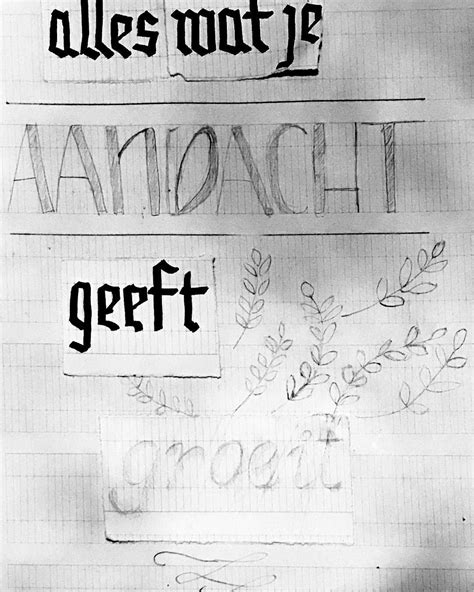 alles wat je
AANDACHT
geeft
groeit